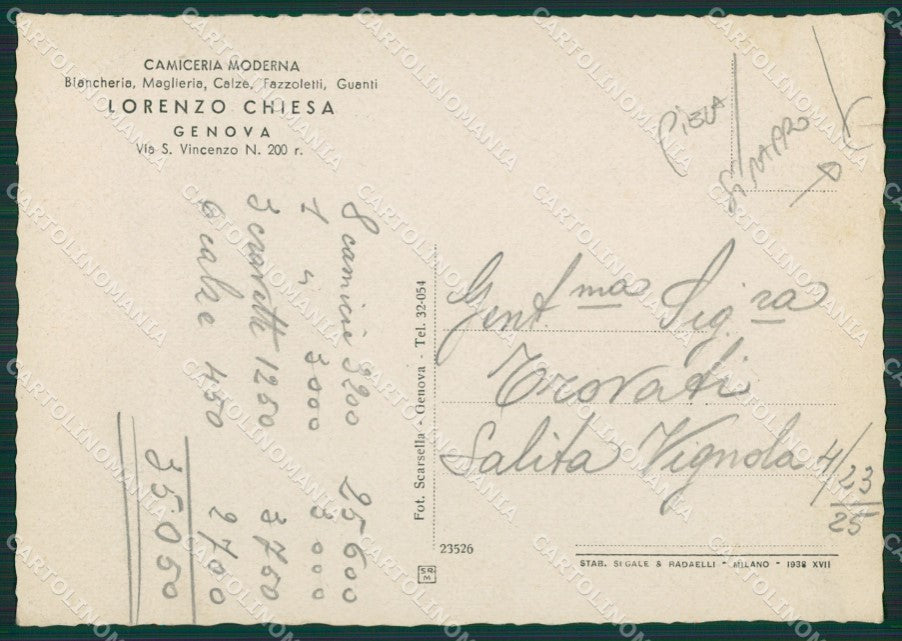 CAMICERIA MODERNA
Biancheria, Maglieria, Calze, Fazzoletti, Guanti
LORENZO CHIESA
GENOVA
Via S. Vincenzo N. 200 r.
8 camicie 3200 25600
1 " 3000 3000
3 cravatte 1250 3750
6 calze 450 2700
35050
Fot. Scarsella - Genova - Tel. 32-054
PIEVA
STRAPPO
Gent.ma Sig.ra
Trovati
Salita Vignola 4/23
25
23526
SR M
STAB. SIGALE & RADAELLI - MILANO - 1938 XVII
CARTOLINOMANIA